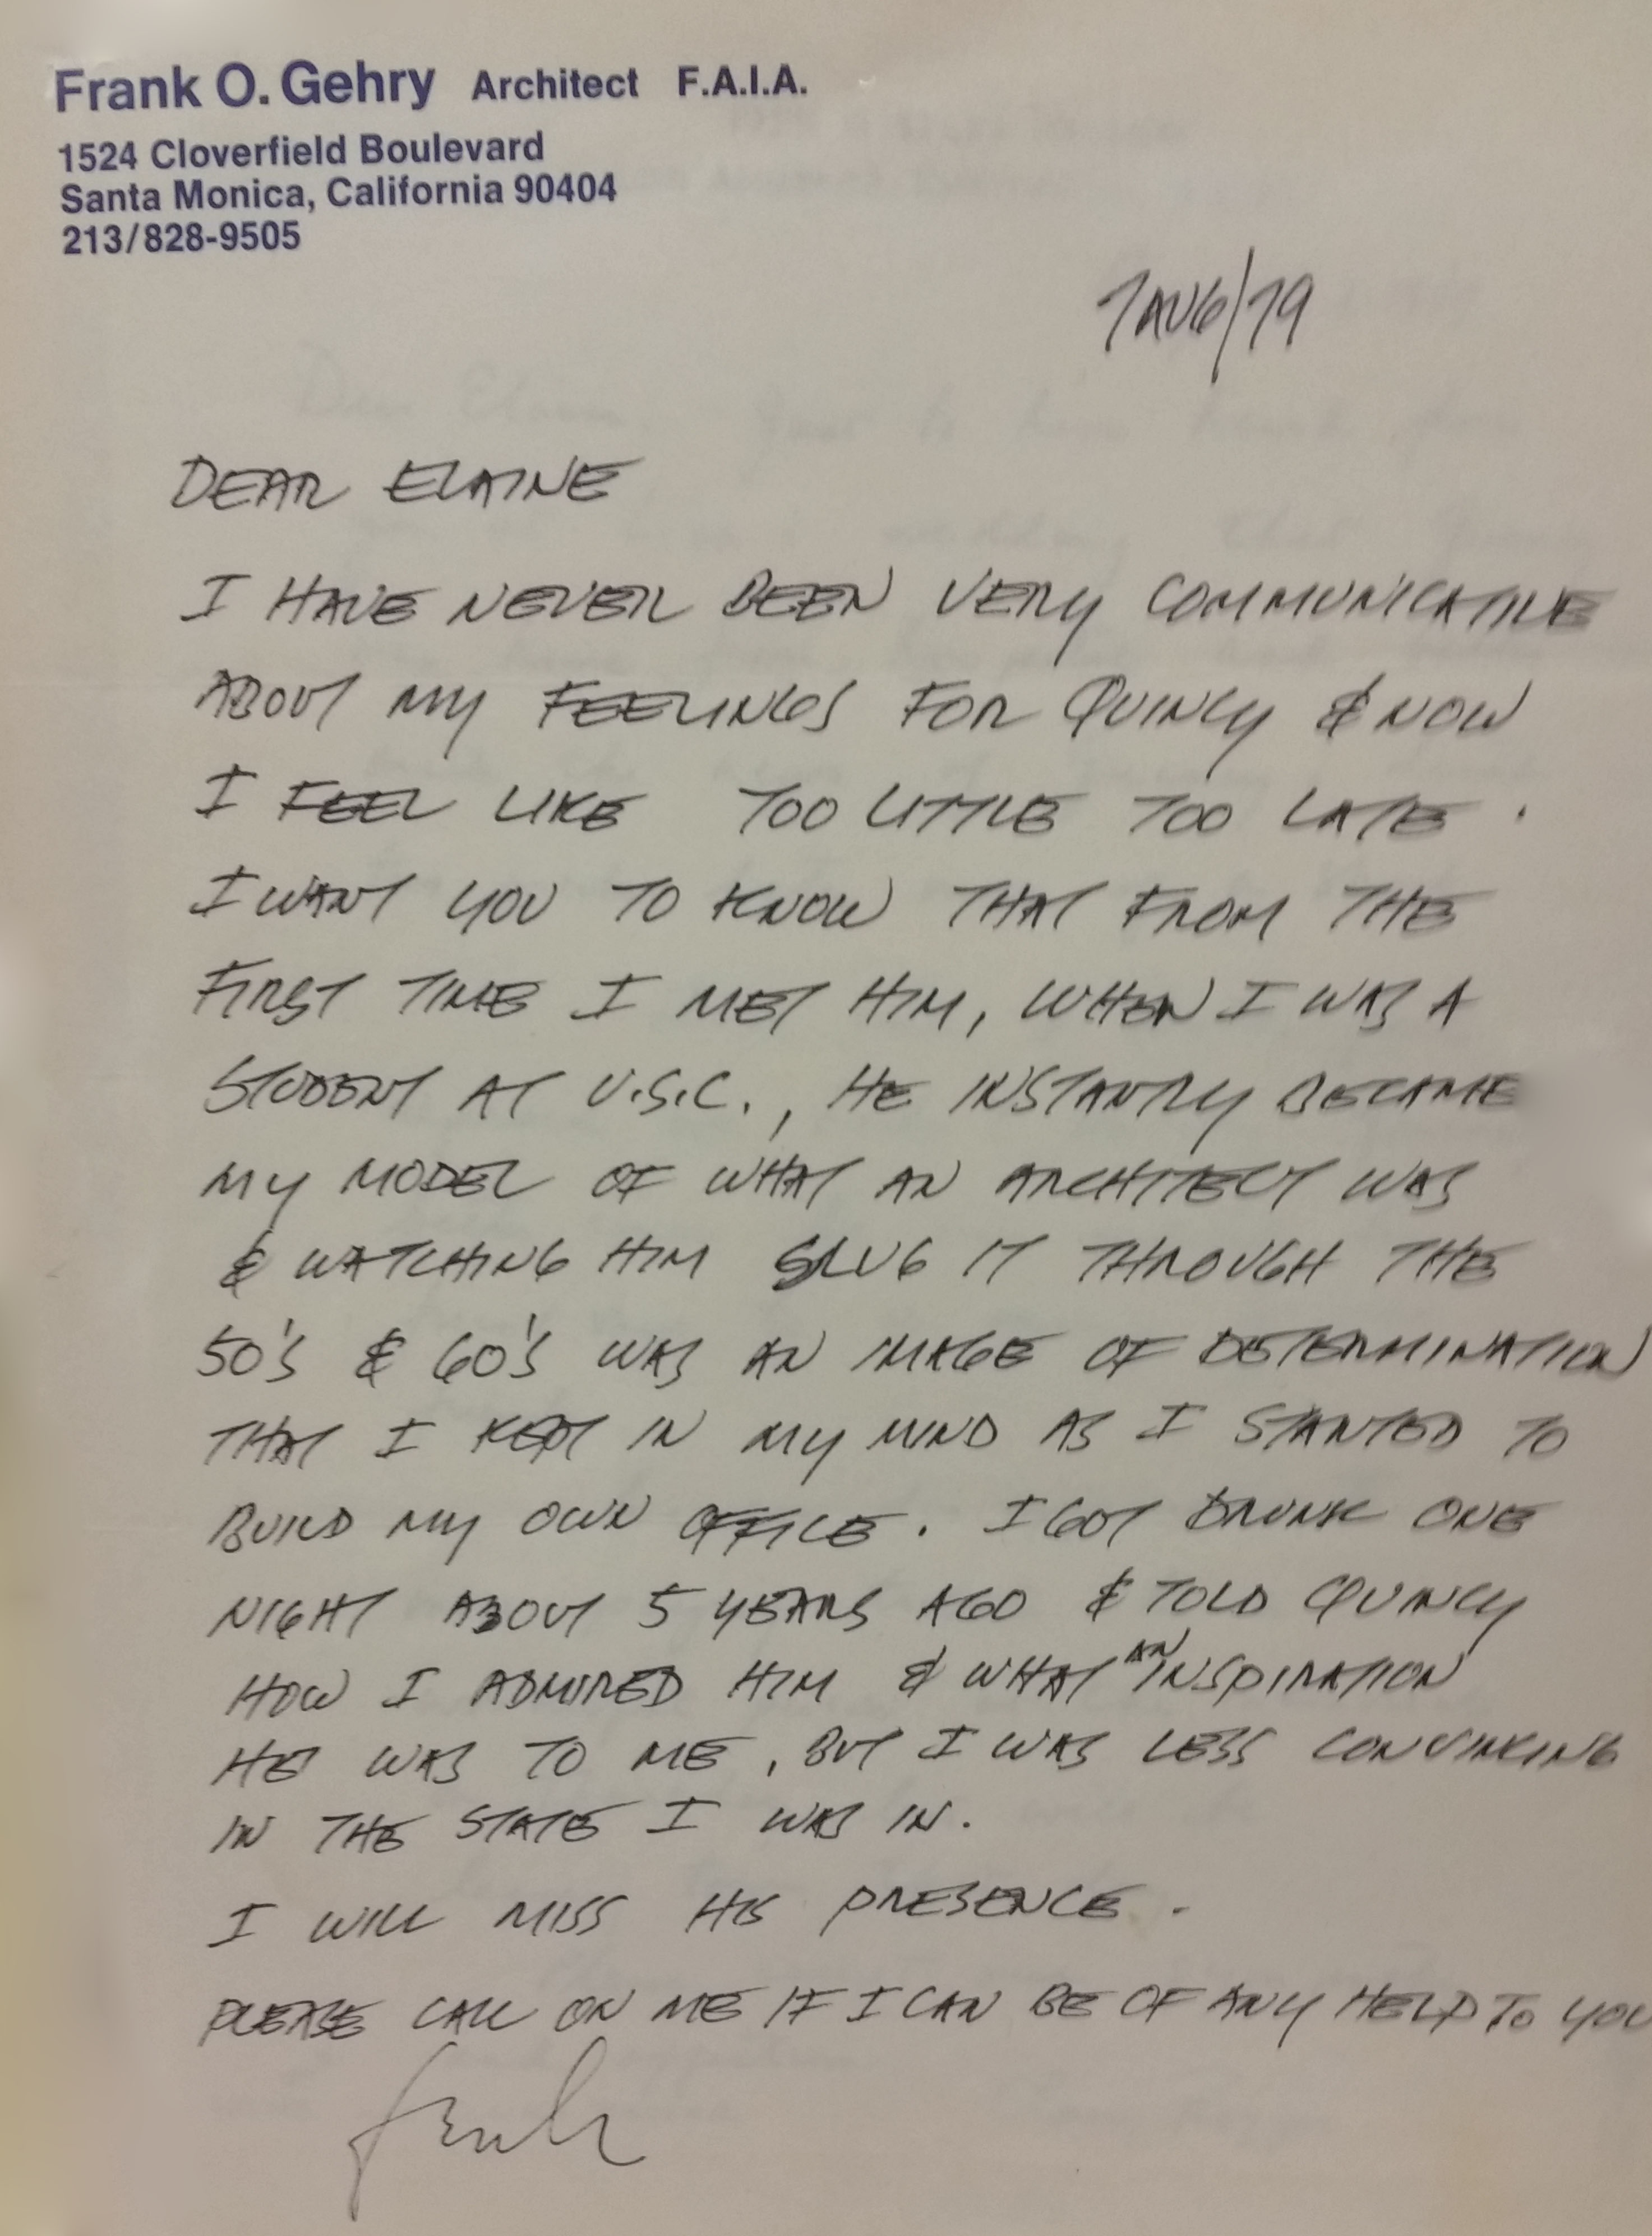 Frank O. Gehry Architect F.A.I.A.
1524 Cloverfield Boulevard
Santa Monica, California 90404
213/828-9505
7AUG/79
DEAR ELAINE
I HAVE NEVER BEEN VERY COMMUNICATIVE
ABOUT MY FEELINGS FOR QUINCY & NOW
I FEEL LIKE TOO LITTLE TOO LATE.
I WANT YOU TO KNOW THAT FROM THE
FIRST TIME I MET HIM, WHEN I WAS A
STUDENT AT U.S.C., HE INSTANTLY BECAME
MY MODEL OF WHAT AN ARCHITECT WAS
& WATCHING HIM SLUG IT THROUGH THE
50'S & 60'S WAS AN IMAGE OF DETERMINATION
THAT I KEPT IN MY MIND AS I STARTED TO
BUILD MY OWN OFFICE. I GOT DRUNK ONE
NIGHT ABOUT 5 YEARS AGO & TOLD QUINCY
HOW I ADMIRED HIM & WHAT AN INSPIRATION
HE WAS TO ME, BUT I WAS LESS CONVINCING
IN THE STATE I WAS IN.
I WILL MISS HIS PRESENCE.
PLEASE CALL ON ME IF I CAN BE OF ANY HELP TO YOU
Frank